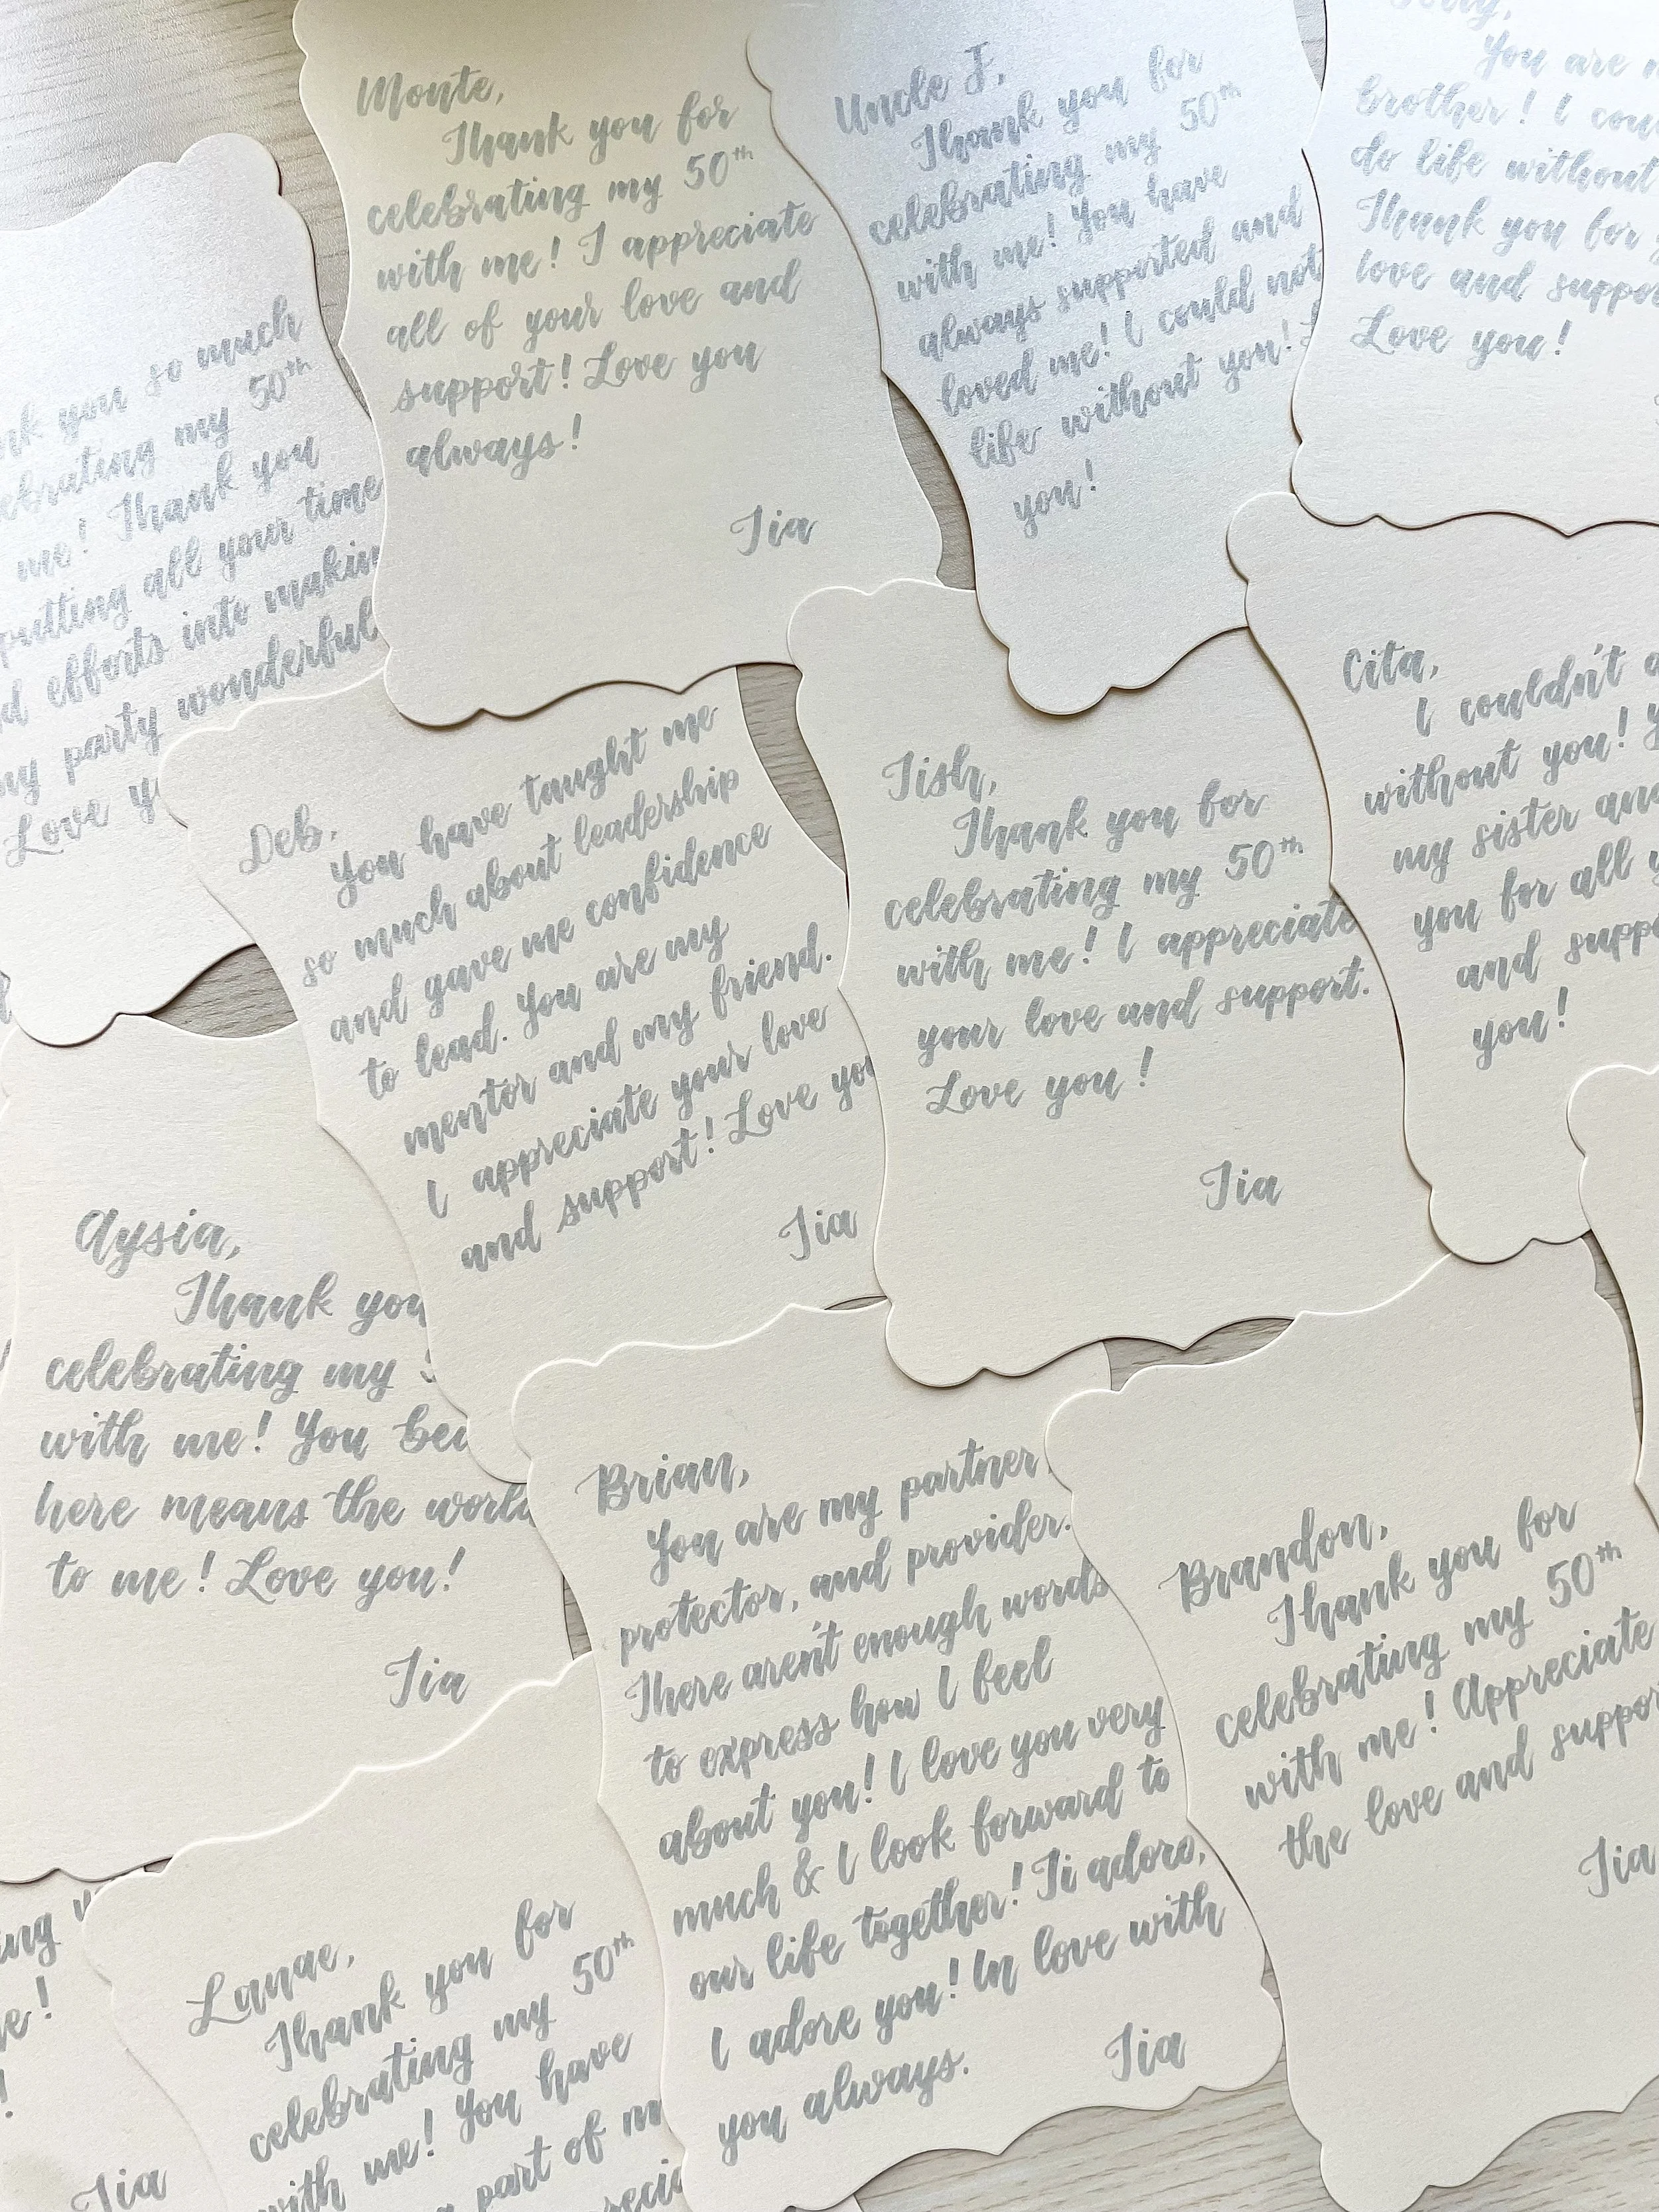 you so much
my 50th
me! Thank you
putting all your time
efforts into
party wonderful
Love
Monte,
Thank you for
celebrating my 50th
with me! I appreciate
all of your love and
support! Love you
always!
Tia
Uncle J,
Thank you for
celebrating my 50th
with me! You have
always supported and
loved me! I could not
life without you!
you!
You are
brother! I
do life without
Thank you for
love and
Love you!
Deb,
You have taught me
so much about leadership
and gave me confidence
to lead. You are my
mentor and my friend.
I appreciate your love
and support! Love you
Tia
Tish,
Thank you for
celebrating my 50th
with me! I appreciate
your love and support.
Love you!
Tia
Cita,
I couldn't
without you!
my sister and
you for all
and
you!
Aysia,
Thank you
celebrating my
with me! You
here means the world
to me! Love you!
Tia
Brian,
You are my partner
protector, and provider.
There aren't enough words
to express how I feel
about you! I love you very
much & I look forward to
our life together! Ti adoro,
I adore you! In love with
you always.
Tia
Brandon,
Thank you for
celebrating my 50th
with me! Appreciate
the love and
Tia
Lanae,
Thank you for
celebrating my 50th
with me! You have
part of
Tia